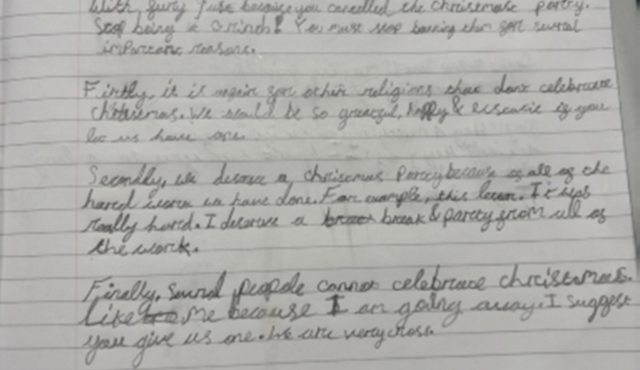 With fury fuse because you cancelled the christmas party.
Stop being a Grinch! You must stop banning this for several
important reasons.
Firstly, it is unfair for other religions that dont celebrate
christmas. We would be so grateful, happy & ecstatic if you
let us have one.
Secondly, we deserve a christmas party because of all of the
hard work we have done. For example, this lesson. It was
really hard. I deserve a break & party from all of
the work.
Finally, several people cannot celebrate christmas.
Like me because I am going away. I suggest
you give us one. We are very cross.